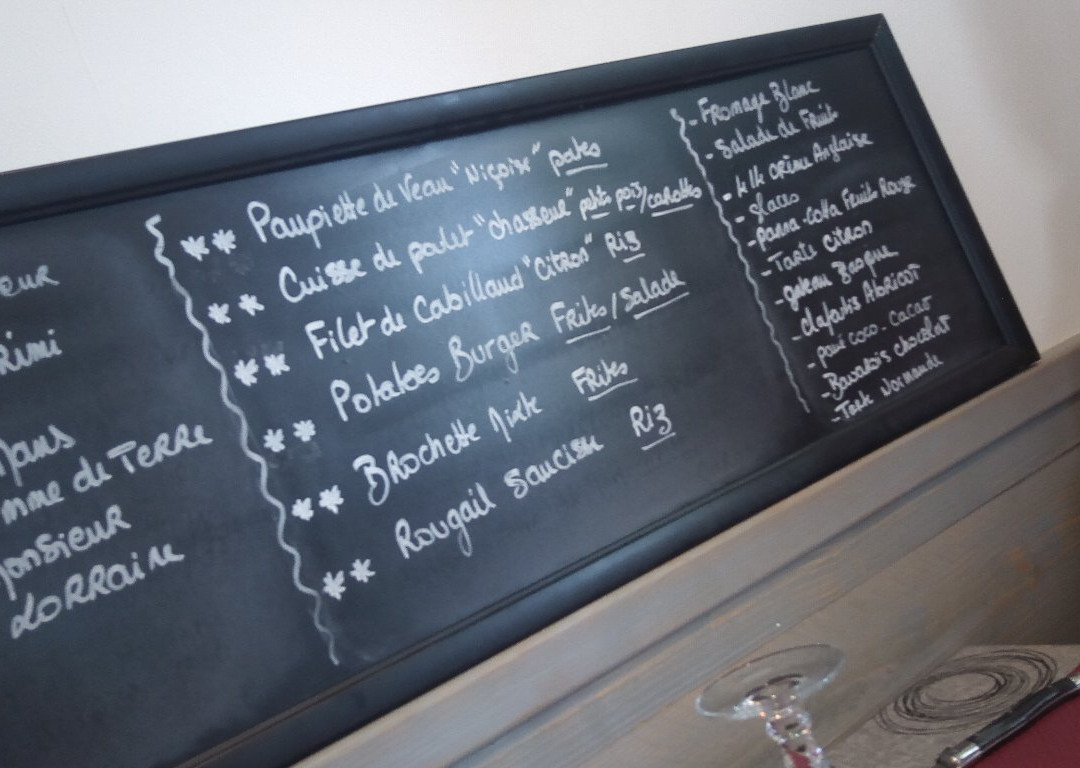 eur
rimi
mans
mme de Terre
Monsieur
Lorraine
** Paupiette de Veau "Niçoise" pates
** Cuisse de poulet "chasseur" petits pois/carottes
** Filet de Cabillaud "Citron" Riz
** Potatoes Burger Frites/Salade
** Brochette Mixte Frites
** Rougail Saucisse Riz
- Fromage Blanc
- Salade de Fruit
- Crème Anglaise
- glaces
- panna-cotta Fruits Rouge
- Tarte Citron
- gateau Basque
- clafoutis Abricot
- coco-cacao
- Bavarois chocolat
- Tarte Normande